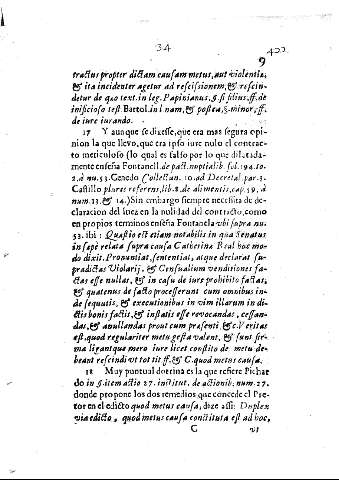 34
422
9
tractus propter dictam causam metus, aut violentiæ,
& ita incidenter agetur ad rescissionem, & rescin-
detur de quo text. in leg. Papinianus, §. si filius, ff. de
inificioso test. Bartol. in l. nam, & postea, §. minor, ff.
de iure iurando.
17 Y aunque se dixesse, que era mas segura opi-
nion la que lleuò, que era ipso iure nulo el contrac-
to meticuloso (lo qual es falso por lo que dilatada-
mente enseña Fontanell. de pact. nuptialib. fol. 194.
à nu. 53. Cenedo Collectan. 10. ad Decretal. par. 3.
Castillo plures referens, lib. 8. de alimentis, cap. 59. à
num. 13. & 14.) Sin embargo siempre necessita de de-
claracion del iuez en la nulidad del contracto, como
en propios terminos enseña Fontanela vbi supra nu.
53. ibi: Quæstio est etiam notabilis in qua Senatus
in sæpè relata supra causa Catherinæ Real hoc mo-
do dixit. Pronuntiat, sententiat, atque declarat su-
pradictas Violarij, & Censualium venditiones fa-
ctas esse nullas, & in casu de iure prohibito factas,
& quatenus de facto processerunt cum omnibus in-
de sequutis, & executionibus in vim illarum in di-
ctis bonis factis, & instatis esse reuocandas, cessan-
das, & anullandas prout cum præsenti, &c. Veritas
est, quod regulariter metu gesta valent, & sunt fir-
ma ligantque mero iure licet constito de metu de-
beant rescindi vt tot tit. ff. & C. quod metus causa.
18 Muy puntual dotrina es la que refiere Pichar
do in §. item actio 27. institut. de actionib. num. 27.
donde propone los dos remedios que concede el Pre-
tor en el edicto quod metus causa, dize assi: Duplex
via edicto, quod metus causa constituta est ad hoc,
C
vt